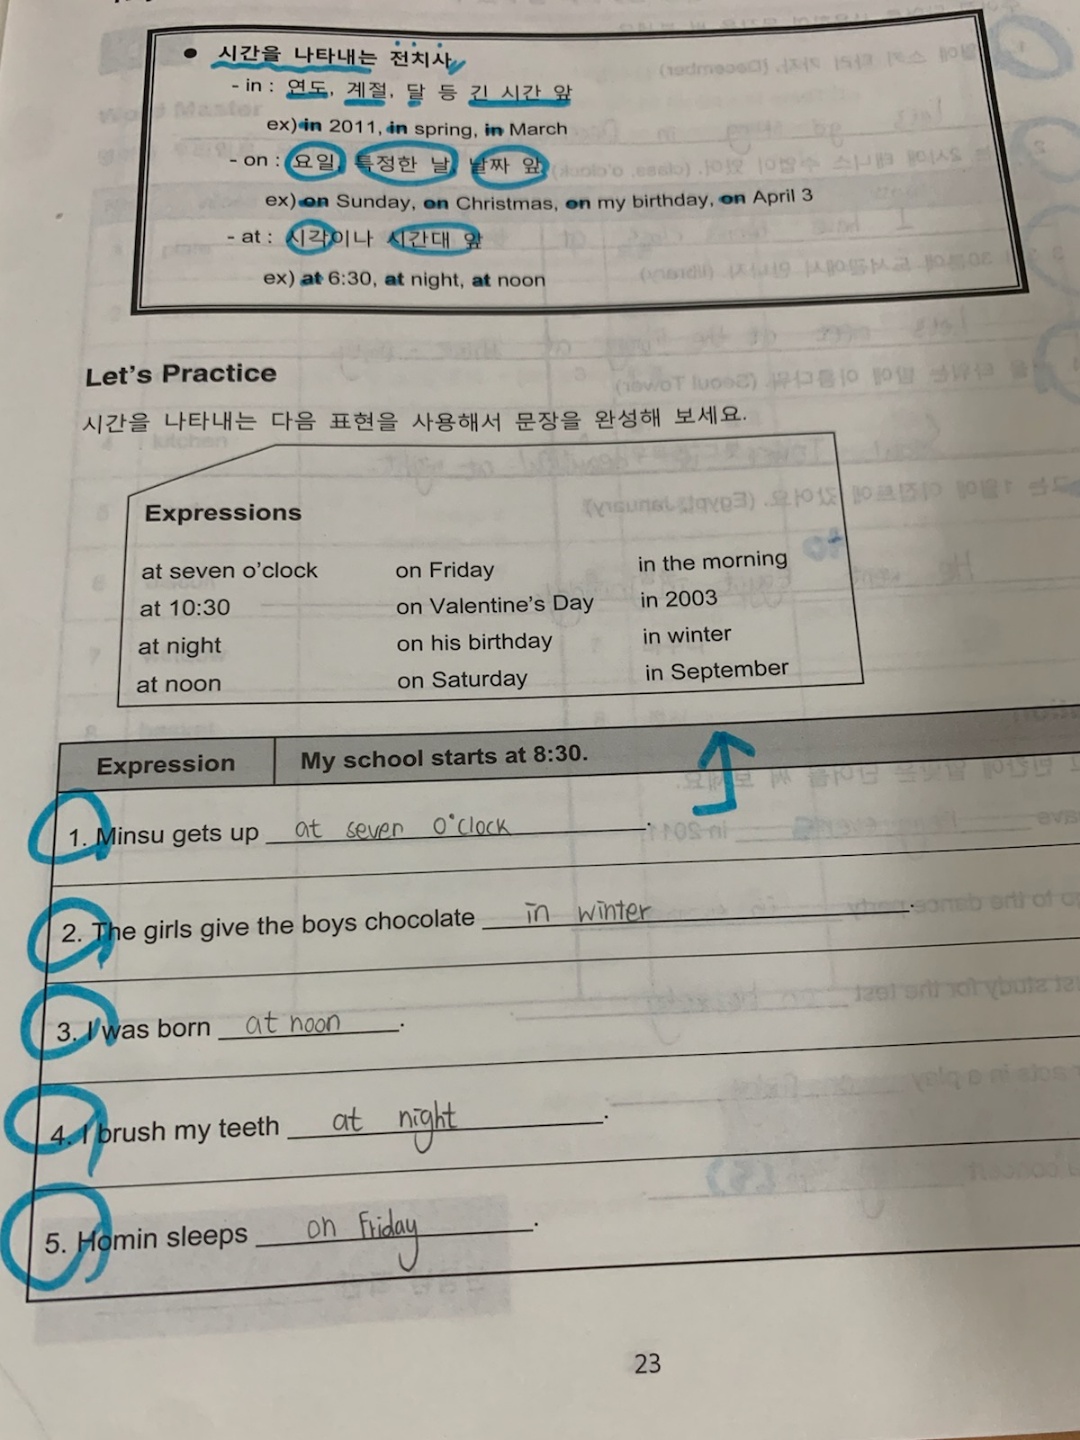 ● 시간을 나타내는 전치사
- in : 연도, 계절, 달 등 긴 시간 앞
ex) in 2011, in spring, in March
- on : 요일, 특정한 날, 날짜 앞
ex) on Sunday, on Christmas, on my birthday, on April 3
- at : 시각이나 시간대 앞
ex) at 6:30, at night, at noon
Let's Practice
시간을 나타내는 다음 표현을 사용해서 문장을 완성해 보세요.
Expressions
at seven o'clock on Friday in the morning
at 10:30 on Valentine's Day in 2003
at night on his birthday in winter
at noon on Saturday in September
Expression My school starts at 8:30.
1. Minsu gets up at seven o'clock.
2. The girls give the boys chocolate in winter.
3. I was born at noon.
4. I brush my teeth at night.
5. Homin sleeps on Friday.
23